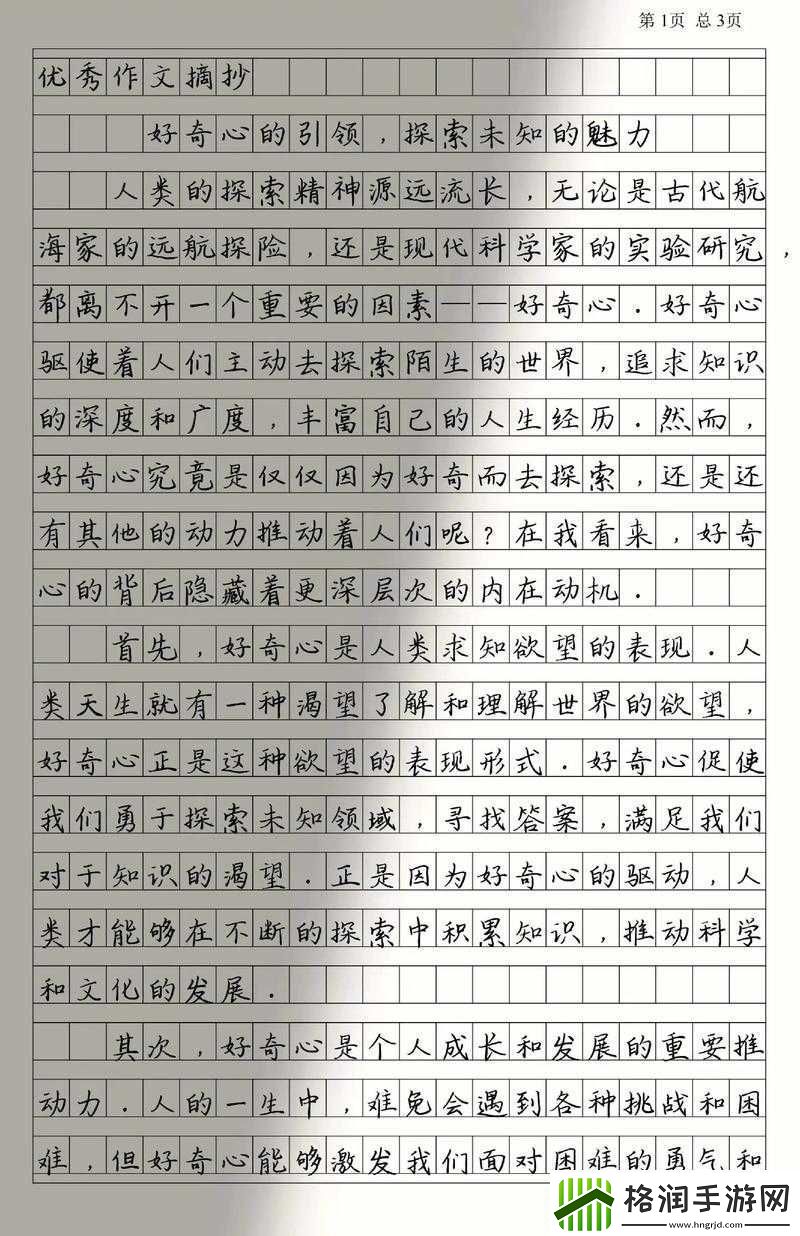 第1页 总3页
优秀作文摘抄
好奇心的引领，探索未知的魅力
人类的探索精神源远流长，无论是古代航
海家的远航探险，还是现代科学家的实验研究，
都离不开一个重要的因素——好奇心．好奇心
驱使着人们主动去探索陌生的世界，追求知识
的深度和广度，丰富自己的人生经历．然而，
好奇心究竟是仅仅因为好奇而去探索，还是还
有其他的动力推动着人们呢？在我看来，好奇
心的背后隐藏着更深层次的内在动机．
首先，好奇心是人类求知欲望的表现．人
类天生就有一种渴望了解和理解世界的欲望，
好奇心正是这种欲望的表现形式．好奇心促使
我们勇于探索未知领域，寻找答案，满足我们
对于知识的渴望．正是因为好奇心的驱动，人
类才能够在不断的探索中积累知识，推动科学
和文化的发展．
其次，好奇心是个人成长和发展的重要推
动力．人的一生中，难免会遇到各种挑战和困
难，但好奇心能够激发我们面对困难的勇气和
格润手游网
www.hngrjd.com